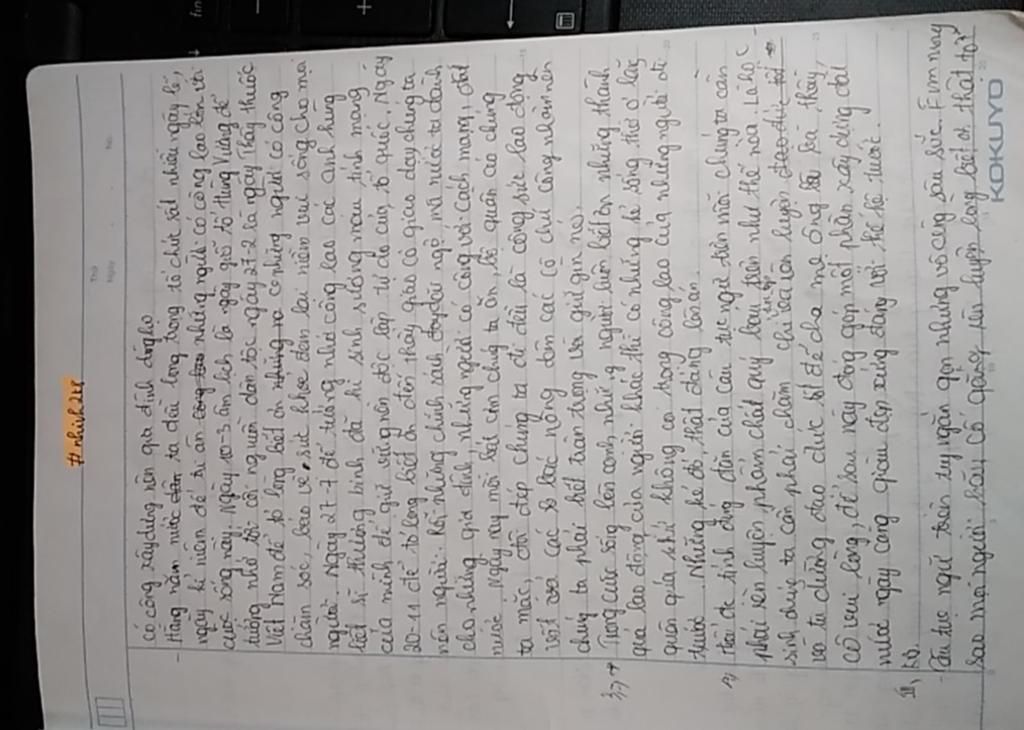 #nhinh248
Thứ
Ngày
No.
có công xây dựng nên gia đình dòng họ
- Hằng năm nước ta đều long trọng tổ chức rất nhiều ngày lễ,
ngày kỉ niệm để tri ân những người có công lao lớn với
cuộc sống này. Ngày 10-3 âm lịch là ngày giỗ tổ Hùng Vương để
tưởng nhớ tới cội nguồn dân tộc, ngày 27-2 là ngày Thầy thuốc
Việt Nam để tỏ lòng biết ơn những người có công
chăm sóc, bảo vệ sức khỏe đem lại niềm vui sống cho mọi
người. Ngày 27-7 để tưởng nhớ công lao các anh hùng
liệt sĩ thương binh đã hi sinh xương máu tính mạng
của mình để giữ vững nền độc lập tự do của tổ quốc, Ngày
20-11 để tỏ lòng biết ơn đến thầy giáo cô giáo dạy chúng ta
nên người. Rồi những chính sách đãi ngộ mà nước ta dành
cho những gia đình, những người có công với cách mạng, đất
nước. Ngày nay mỗi bát cơm chúng ta ăn, bộ quần áo chúng
ta mặc, đôi dép chúng ta đi đều là công sức lao động
vất vả các bác nông dân các cô chú công nhân nên
chúng ta phải biết trân trọng và giữ gìn nó.
3, → Trong cuộc sống bên cạnh những người luôn biết ơn những thành
quả lao động của người khác thì có những kẻ sống thờ ơ lãng
quên quá khứ không coi trọng công lao của những người đi
trước. Những kẻ đó, thật đáng lên án.
4, Thấy được tính đúng đắn của câu tục ngữ trên mỗi chúng ta cần
phải rèn luyện phẩm chất quý báu trên như thế nào. Là học
sinh chúng ta cần phải chăm chỉ học tập và rèn luyện
và tu dưỡng đạo đức tốt để cha mẹ ông bà thầy,
cô vui lòng, để sau này đóng góp một phần xây dựng đất
nước ngày càng giàu đẹp, xứng đáng với thế hệ trước.
III, KB.
- Câu tục ngữ trên tuy ngắn gọn nhưng vô cùng sâu sắc. Em mong
sao mọi người hãy cố gắng rèn luyện lòng biết ơn thật tốt
KOKUYO